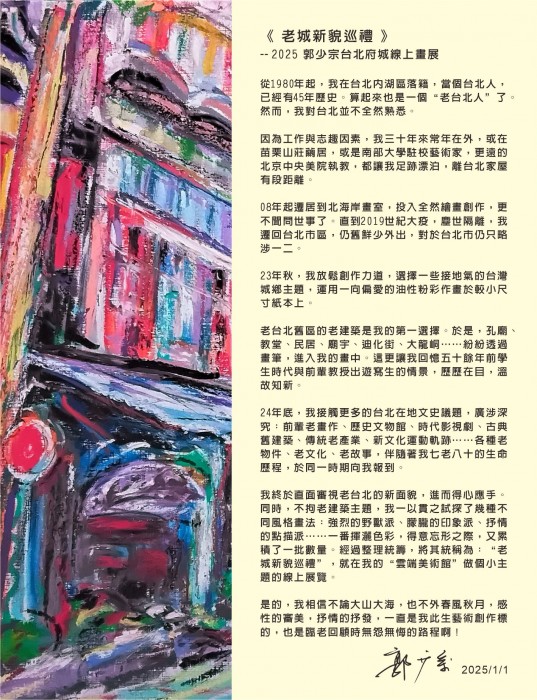 《 老城新貌巡禮 》
-- 2025 郭少宗台北府城線上畫展
從1980年起，我在台北內湖區落籍，當個台北人，
已經有45年歷史。算起來也是一個“老台北人”了。
然而，我對台北並不全然熟悉。
因為工作與志趣因素，我三十年來常年在外，或在
苗栗山莊蝸居，或是南部大學駐校藝術家，更遠的
北京中央美院執教，都讓我足跡漂泊，離台北家屋
有段距離。
08年起遷居到北海岸畫室，投入全然繪畫創作，更
不聞問世事了。直到2019世紀大疫，塵世隔離，我
遷回台北市區，仍舊鮮少外出，對於台北市仍只略
涉一二。
23年秋，我放鬆創作力道，選擇一些接地氣的台灣
城鄉主題，運用一向偏愛的油性粉彩作畫於較小尺
寸紙本上。
老台北舊區的老建築是我的第一選擇。於是，孔廟、
教堂、民居、廟宇、迪化街、大龍峒……紛紛透過
畫筆，進入我的畫中。這更讓我回憶五十餘年前學
生時代與前輩教授出遊寫生的情景，歷歷在目，溫
故知新。
24年底，我接觸更多的台北在地文史議題，廣涉深
究：前輩老畫作、歷史文物館、時代影視劇、古典
舊建築、傳統老產業、新文化運動軌跡……各種老
物件、老文化、老故事，伴隨著我七老八十的生命
歷程，於同一時期向我報到。
我終於直面審視老台北的新面貌，進而得心應手。
同時，不拘老建築主題，我一以貫之試探了幾種不
同風格畫法：強烈的野獸派、朦朧的印象派、抒情
的點描派……一番揮灑色彩，得意忘形之際，又累
積了一批數量。經過整理統籌，將其統稱為：“老
城新貌巡禮”，就在我的“雲端美術館”做個小主
題的線上展覽。
是的，我相信不論大山大海，也不外春風秋月，感
性的審美，抒情的抒發，一直是我此生藝術創作標
的，也是臨老回顧時無怨無悔的路程啊！
郭少宗 2025/1/1